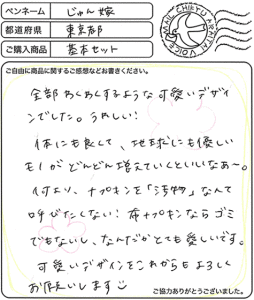 ペンネーム じゅん嫁
MAIL CHIKYU ARATTAI VOICE
都道府県 東京都
ご購入商品 基本セット
ご自由に商品に関するご感想などお書きください。
全部わくわくするような可愛いデザイ
ンでした。うれしい!
体にも良くて、地球にも優しい
モノがどんどん増えていくといいなあ〜。
何より、ナプキンを「汚物」なんて
呼びたくない!布ナプキンならゴミ
でもないし、なんだかとても愛しいです。
可愛いデザインをこれからもよろしく
お願いします
ご協力ありがとうございました。